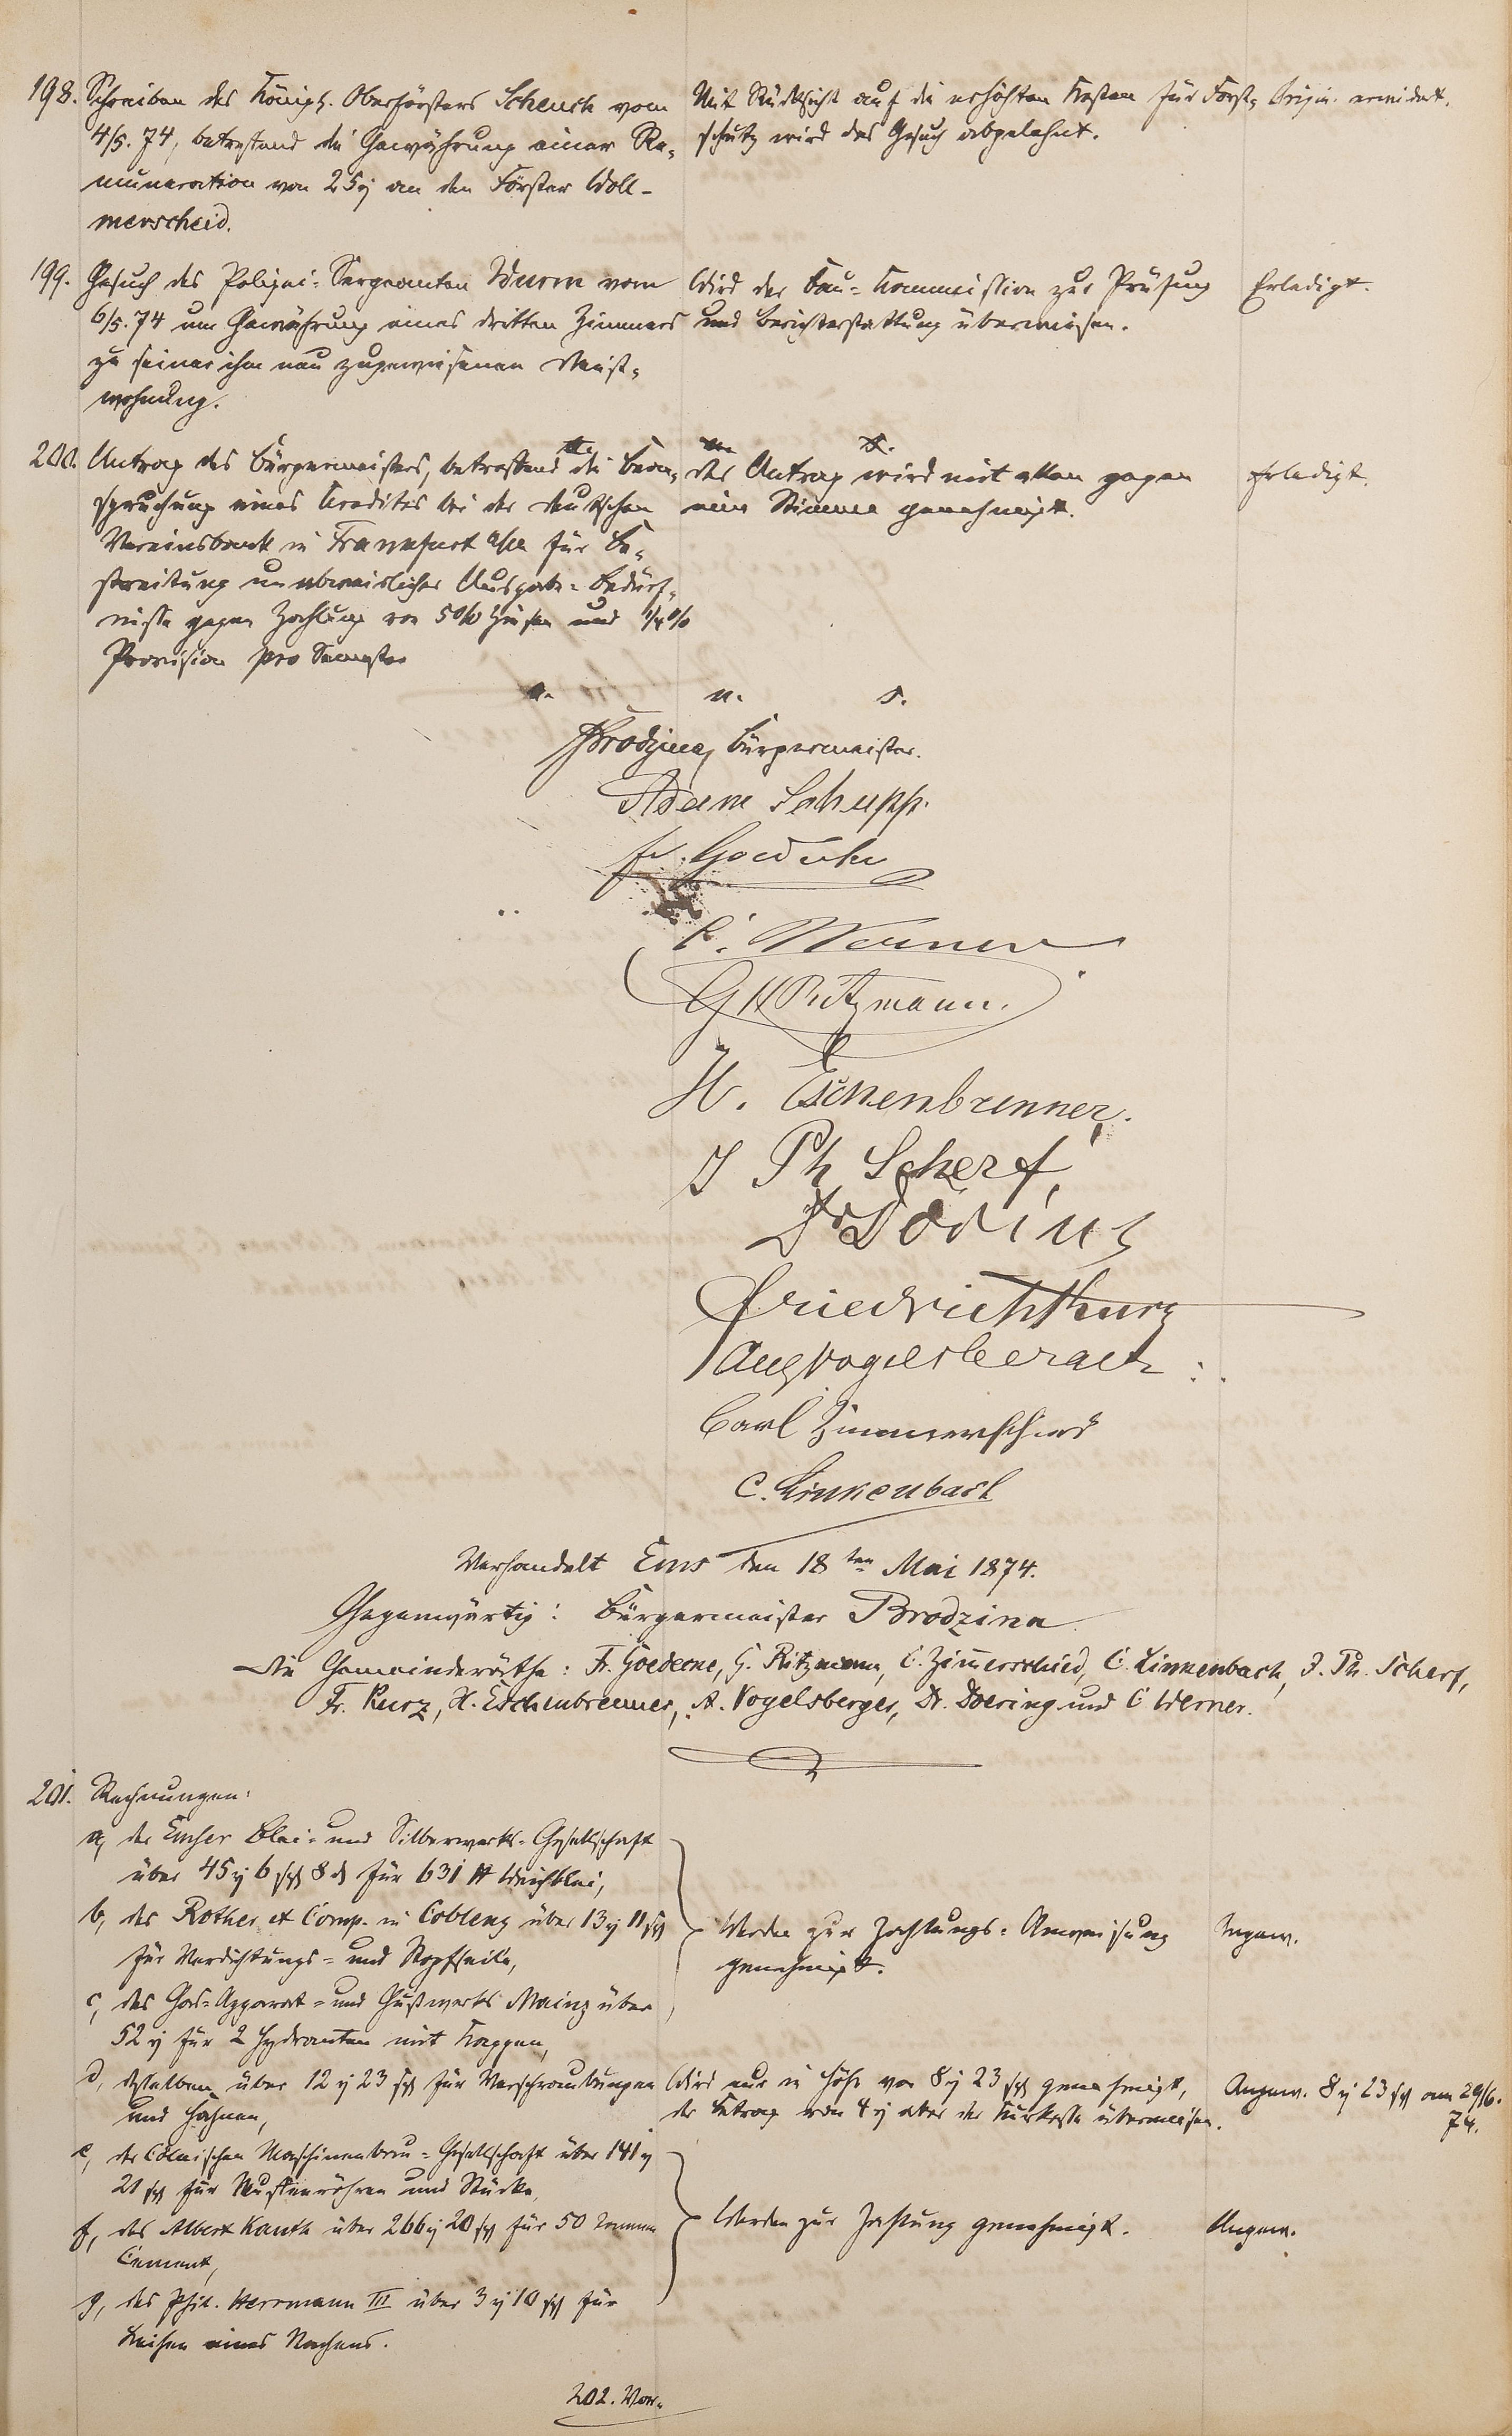 198. Schreiben des Königl. Oberförsters Schenck vom
4/5. 74, betreffend die Gewährung einer Re-
muneration von 25 an den Förster Woll-
merscheid.
Mit Rücksicht auf die erhöhten Kosten für Forst-
schutz wird das Gesuch abgelehnt.
199. Gesuch des Polizei-Sergeanten Wurm vom
6/5. 74 um Gewährung eines dritten Zimmers
zu seiner ihm neu zugewiesenen Dienst-
wohnung.
Wird der Bau-Kommission zur Prüfung
und Berichterstattung überwiesen.
Erledigt.
200. Antrag des Bürgermeisters, betreffend die Bean-
spruchung eines Kredites bei der deutschen
Vereinsbank in Frankfurt a/M für Be-
streitung unabweislicher Ausgabe-Bedürf-
nisse gegen Zahlung von 5% Zinsen und 1/4%
Provision pro Semester
Der Antrag wird mit allen gegen
eine Stimme genehmigt.
Erledigt.
v. u. s.
Brodzina, Bürgermeister.
Adam Schupp.
Fr. Goedecke
C. Werner
G H Ritzmann.
H. Eschenbrenner.
J Ph Scherf,
Dr Döring
Friedrich Kurz
Aug Vogelsberger
Carl Zimmerschied
C. Linkenbach
Verhandelt Ems den 18ten Mai 1874.
Gegenwärtig: Bürgermeister Brodzina
Die Gemeinderäthe: Fr. Goedecke, G. Ritzmann, C. Zimerschied, C. Linkenbach, J. Ph. Scherf,
Fr. Kurz, H. Eschenbrenner, A. Vogelsberger, Dr. Doering und C Werner.
201. Rechnungen:
a, der Emser Blei- und Silberwerks-Gesellschaft
über 45 6 8 für 631 ℔ Weichblei,
b, des Rother et Comp. in Coblenz über 13 11
für Verdichtungs- und Stopfseile,
c, des Gas-Apparat- und Gußwerks Mainz über
52 für 2 Hydranten mit Kappen,
Werden zur Zahlungs-Anweisung
genehmigt.
Angew.
d, desselben über 12 23 für Verschraubungen
und Hahnen,
Wird nur in Höhe von 8 23 genehmigt,
der Betrag von 4 aber der Kurkasse überwiesen.
Angew. 8 23 am 29/6.
74.
e, der Cölnischen Maschinenbau-Gesellschaft über 141
21 für Muffenröhren und Stücke,
f, des Albert Kauth über 266 20 für 50 Tonnen
Cement,
g, des Phil. Herrmann III über 3 10 für
Leihen eines Nachens.
Werden zur Zahlung genehmigt.
Angew.
202. Vor-